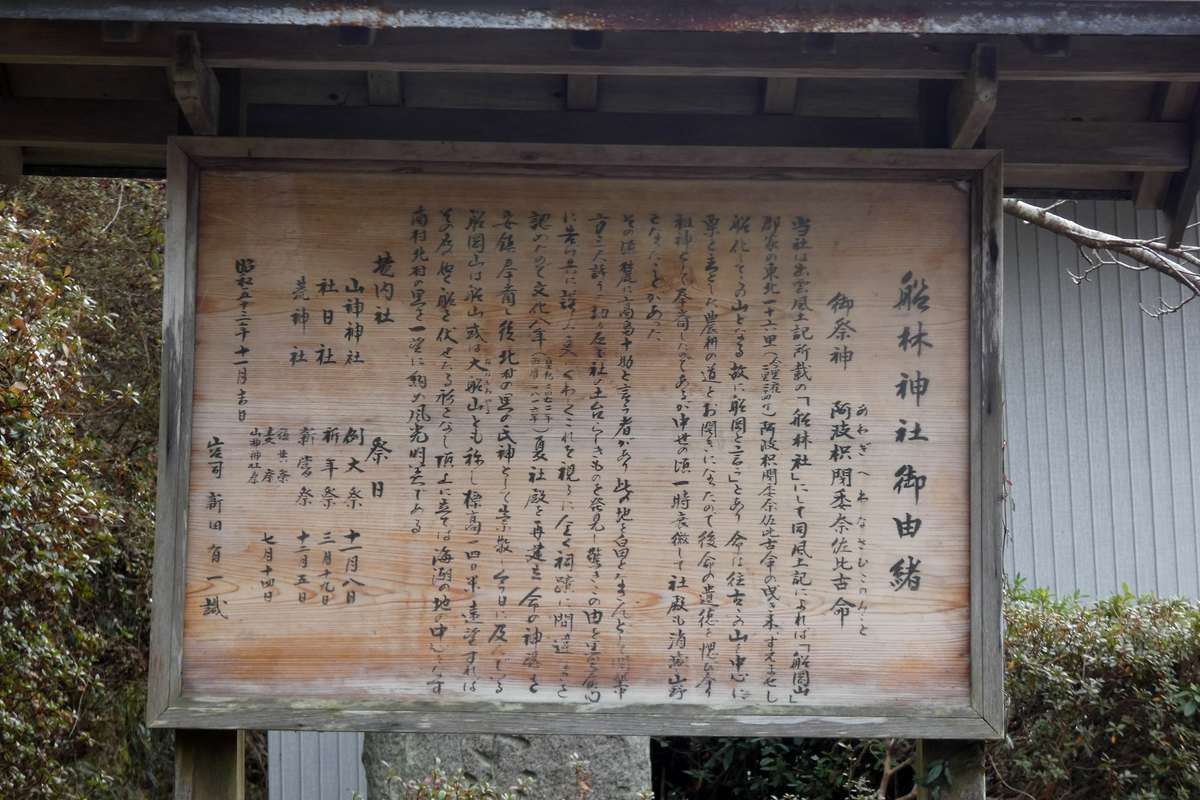 船林神社御由緒
御祭神 阿波枳閇委奈佐比古命
あわきへわなさひこのみこと
当社は出雲風土記所載の「船林社」にして同風土記によれば「船岡山
郡家の東北一十六里 阿波枳閇委奈佐比古命の曳き来すえませし
船化してこの山となる故に船岡と言う」とあり 命は往古この山を中心に
粟を 農耕の道をお開きになったので後命の遺徳を 
祖神として奉斎したのであるが中世の頃一時衰微して社殿も消滅山野
となったことがあった
その頃 高島十助と言う者があり此の地を畠となさんとして
方三尺許りの 社の土台らしきものを発見し驚きこの由を
に告げ共に くわしくこれを視るに全く祠跡に間違なきと
認めたので文化八年(西暦一八一一年)夏社殿を再建立 命の神霊を
安鎮奉斎し後北村の里の氏神として崇敬し今日に及んでいる
船岡山は船山或は大船山とも称し標高一四〇米遠望すれば
船を伏せたる形をなし頂上に立てば海潮の地の中心をなす
南村北村の里を一望に納め風光明 である
境内社
山神神社
社日社
荒神社
祭日
例大祭 十一月八日
祈年祭 三月十九日
新嘗祭 十二月五日
夏祭
山神神社祭
七月十四日
昭和五十三年十一月吉日
宮司 新田 有一 誠